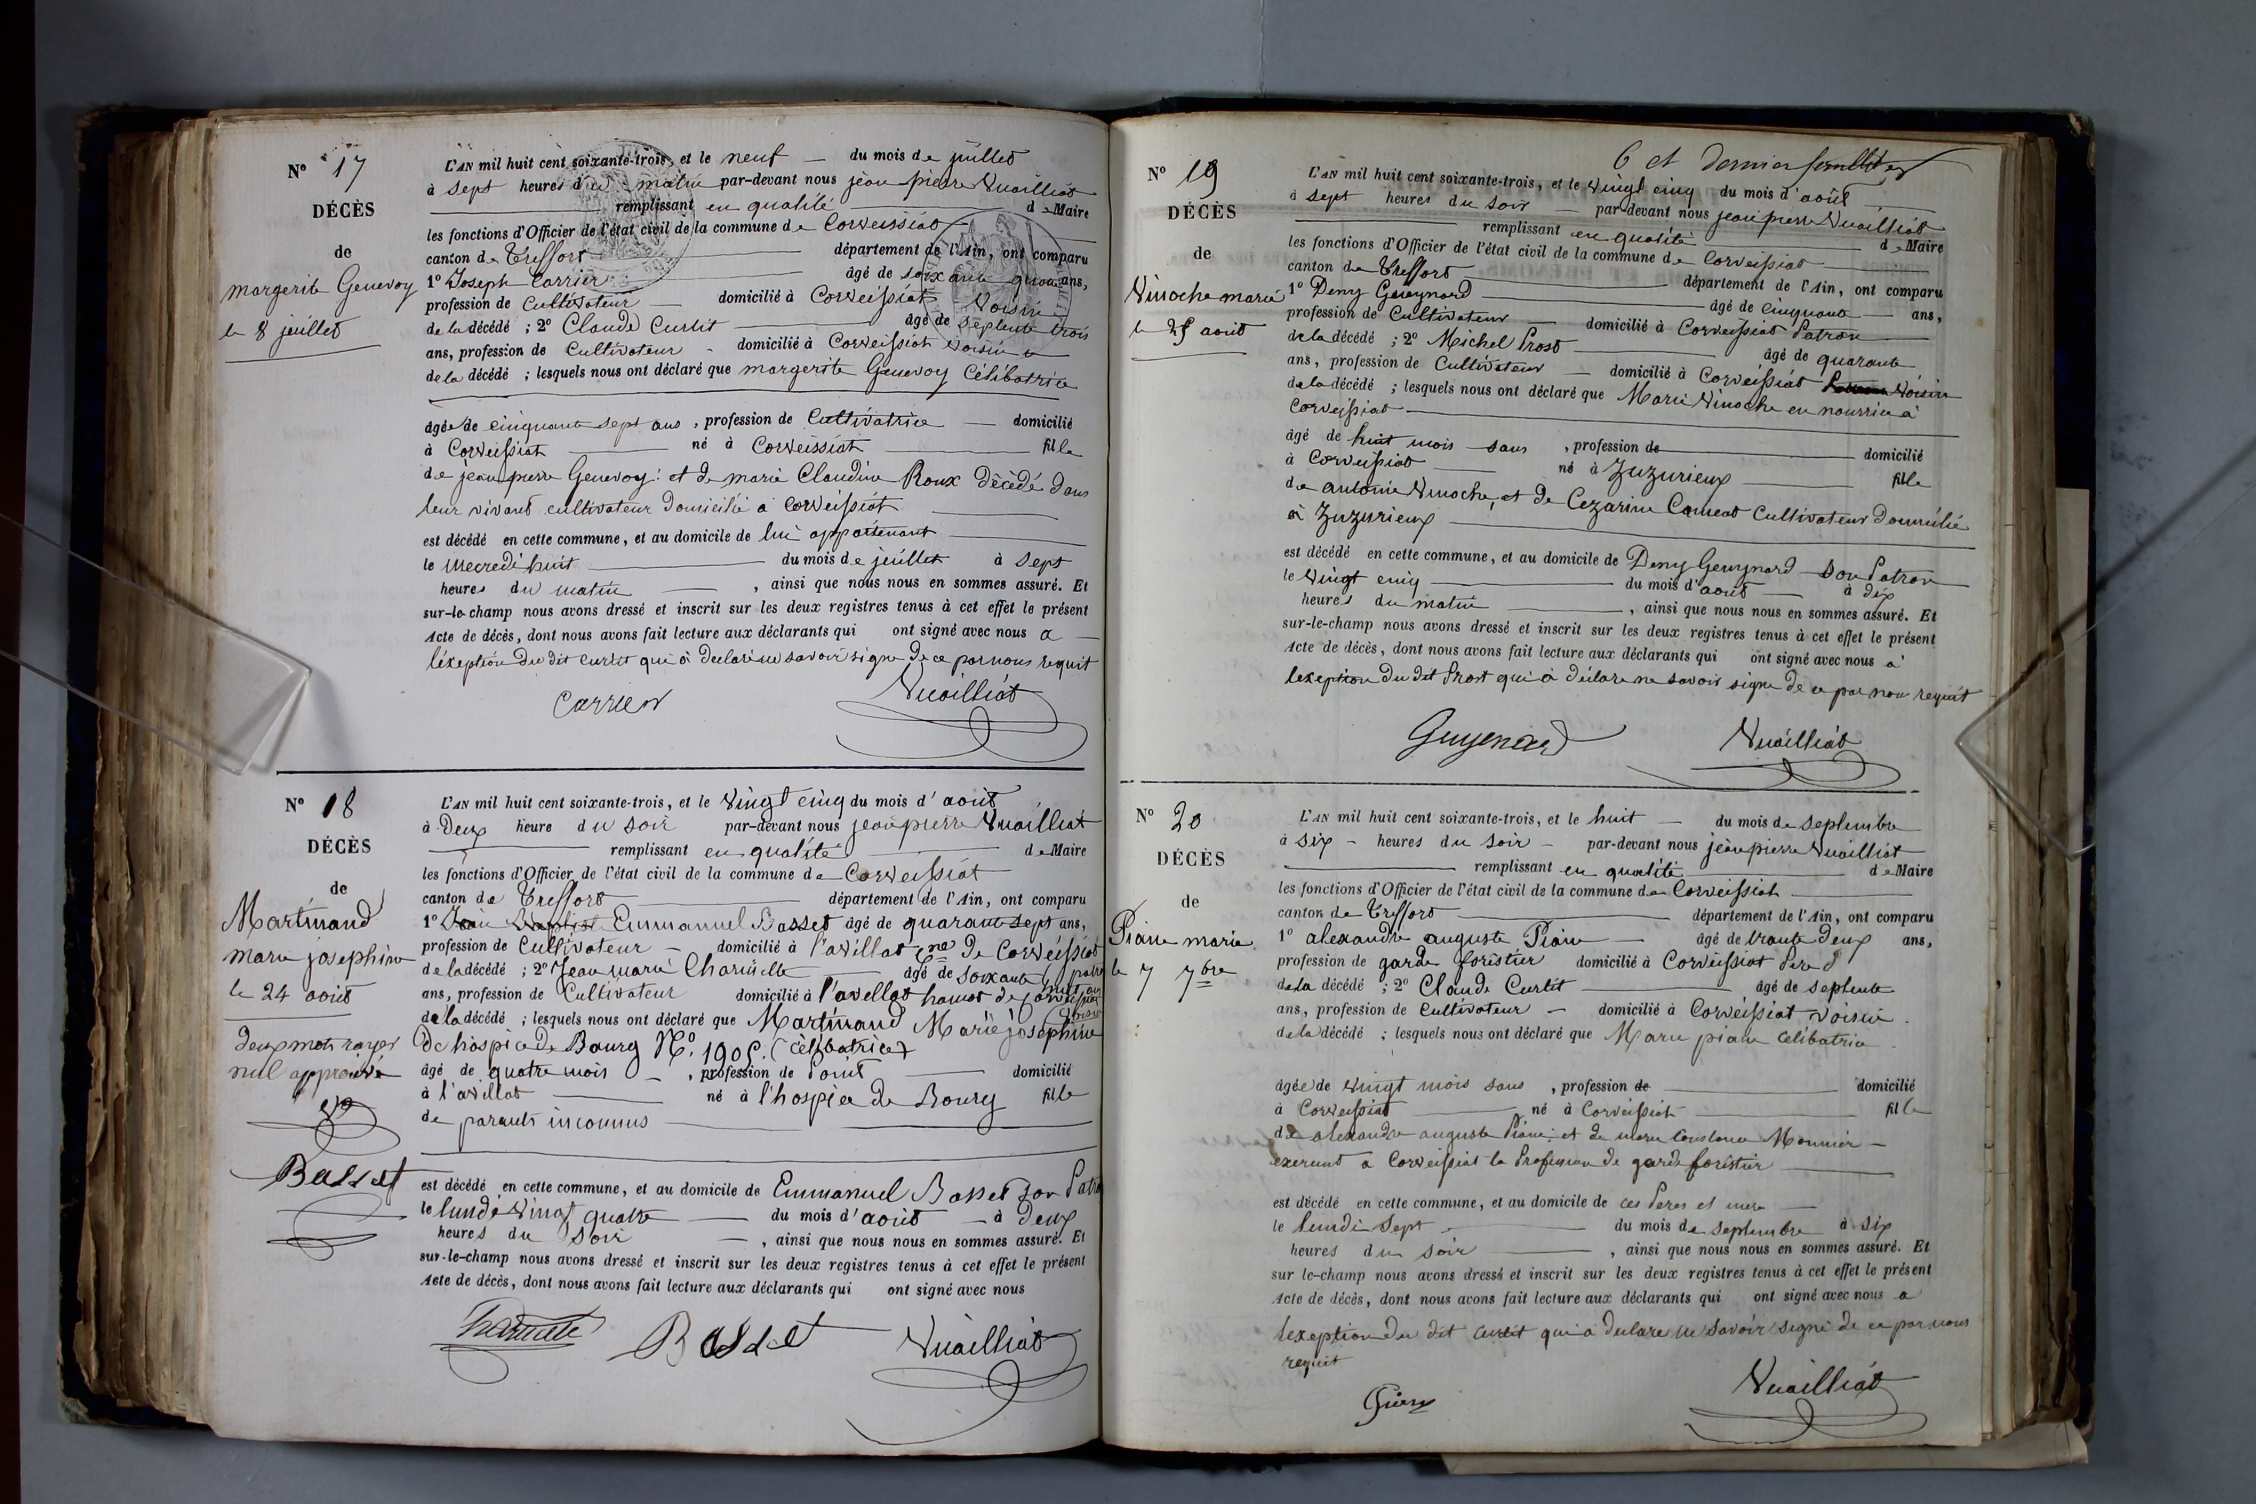 N° 17
DÉCÈS
de
margerite Genevoy
le 8 juillet
L'AN mil huit cent soixante-trois, et le neuf du mois de juillet
à sept heures du matin par-devant nous jean pierre Vuailliat
remplissant en qualité de Maire
les fonctions d'Officier de l'état civil de la commune de Corveissiat
canton de Treffort département de l'Ain, ont comparu
1° Joseph Carrier âgé de soixante ans,
profession de Cultivateur domicilié à Corveissiat Voisin
de la décédé ; 2° Claude Curtit âgé de septente trois
ans, profession de Cultivateur domicilié à Corveissiat Voisin
de la décédé ; lesquels nous ont déclaré que margerite Genevoy Célibatrice
âgée de cinquante sept ans, profession de Cultivatrice domicilié
à Corveissiat né à Corveissiat fille
de jean pierre Genevoy et de marie Claudine Roux décédé dans
leur vivant cultivateur domicilié a Corveissiat
est décédé en cette commune, et au domicile de lui appartenant
le mecredi huit du mois de juillet à sept
heures du matin, ainsi que nous nous en sommes assuré. Et
sur-le-champ nous avons dressé et inscrit sur les deux registres tenus à cet effet le présent
Acte de décès, dont nous avons fait lecture aux déclarants qui ont signé avec nous a
l'exeption du dit curtit qui à declaré ne savoir signe de ce par nous requit
Carrier Vuailliat
N° 18
DÉCÈS
de
Martinand
marie josephine
le 24 août
deux mots rayer
nul approuvé
Basset
L'AN mil huit cent soixante-trois, et le vingt cinq du mois d'août
à Deux heure du soir par-devant nous jean pierre Vuailliat
remplissant en qualité de Maire
les fonctions d'Officier de l'état civil de la commune de Corveissiat
canton de Treffort département de l'Ain, ont comparu
1° Jean Baptist Emmanuel Basset âgé de quarante sept ans,
profession de Cultivateur domicilié à l'avillat cne de Corveissiat
de la décédé ; 2° Jean marie Charnelle âgé de soixante
ans, profession de Cultivateur domicilié à l'avellat hamot de
de la décédé ; lesquels nous ont déclaré que Martinand Marie josephine
de hospice de Bourg N° 1905. (célibatrice)
âgé de quatre mois, profession de point domicilié
à l'avillat né à l'hospice de Bourg fille
de parents inconnus
est décédé en cette commune, et au domicile de Emmanuel Basset son Patron
le lundi vingt quatre du mois d'août à deux
heures du soir, ainsi que nous nous en sommes assuré. Et
sur-le-champ nous avons dressé et inscrit sur les deux registres tenus à cet effet le présent
Acte de décès, dont nous avons fait lecture aux déclarants qui ont signé avec nous
Basset Vuailliat
6 et dernier feuillet
N° 19
DÉCÈS
de
Vinoche marie
le 25 aoüt
L'AN mil huit cent soixante-trois, et le vingt cinq du mois d'août
à sept heures du soir par-devant nous jean pierre Vuailliat
remplissant en qualité de Maire
les fonctions d'Officier de l'état civil de la commune de Corveissiat
canton de Treffort département de l'Ain, ont comparu
1° Deny Geuynard âgé de cinquante ans,
profession de Cultivateur domicilié à Corveissiat Patron
de la décédé ; 2° Michel Prost âgé de quarante
ans, profession de Cultivateur domicilié à Corveissiat Voisin
de la décédé ; lesquels nous ont déclaré que Marie Vinoche en nourrice à
Corveissiat
âgé de huit mois sans, profession de domicilié
à Corveissiat né à Juzurieux fille
de antonie Vinoche, et de Cezarine Cameat cultivateur domicilié
à Juzurieux
est décédé en cette commune, et au domicile de Deny Geuynard son Patron
le vingt cinq du mois d'août à dix
heures du matin, ainsi que nous nous en sommes assuré. Et
sur-le-champ nous avons dressé et inscrit sur les deux registres tenus à cet effet le présent
Acte de décès, dont nous avons fait lecture aux déclarants qui ont signé avec nous à
l'exeption du dit Prost qui à déclare ne savoir signe de ce par nous requit
Guyenard Vuailliat
N° 20
DÉCÈS
de
Piane marie
le 7 7bre
L'AN mil huit cent soixante-trois, et le huit du mois de septembre
à six heures du soir par-devant nous jean pierre Vuailliat
remplissant en qualité de Maire
les fonctions d'Officier de l'état civil de la commune de Corveissiat
canton de Treffort département de l'Ain, ont comparu
1° alexandre auguste Piane âgé de trante deux ans,
profession de garde forestier domicilié à Corveissiat Pere
de la décédé ; 2° Claude Curtit âgé de septente
ans, profession de Cultivateur domicilié à Corveissiat voisin
de la décédé ; lesquels nous ont déclaré que Marie piane célibatrice
âgée de vingt mois sans, profession de domicilié
à Corveissiat né à Corveissiat fille
de alexandre auguste Piane et de marie Constance Monnier
exercent a Corveissiat la Profession de garde forestier
est décédé en cette commune, et au domicile de ces Peres et mere
le lundi sept du mois de septembre à six
heures du soir, ainsi que nous nous en sommes assuré. Et
sur le-champ nous avons dressé et inscrit sur les deux registres tenus à cet effet le présent
Acte de décès, dont nous avons fait lecture aux déclarants qui ont signé avec nous a
l'exeption du dit curtit qui à declare ne savoir signé de ce par nous
requit
Vuailliat